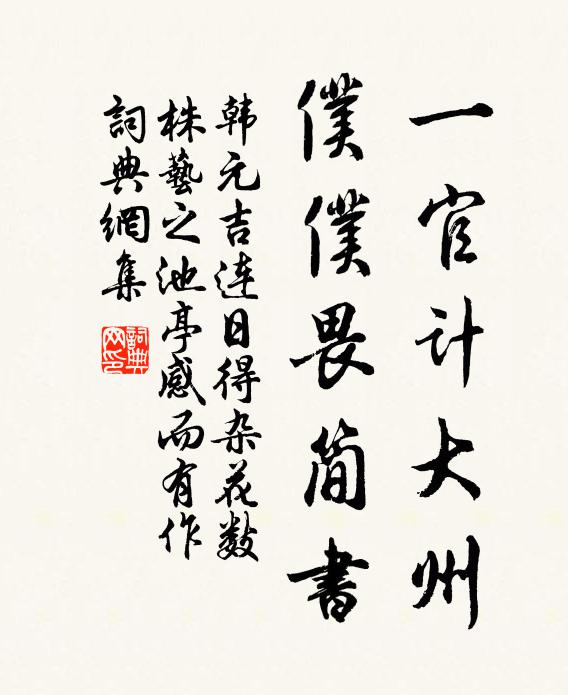 一官计大州
僕僕畏简書
韩元吉连日得杂花数
株藝之池亭感而有作
詞典網集
詞典
网印